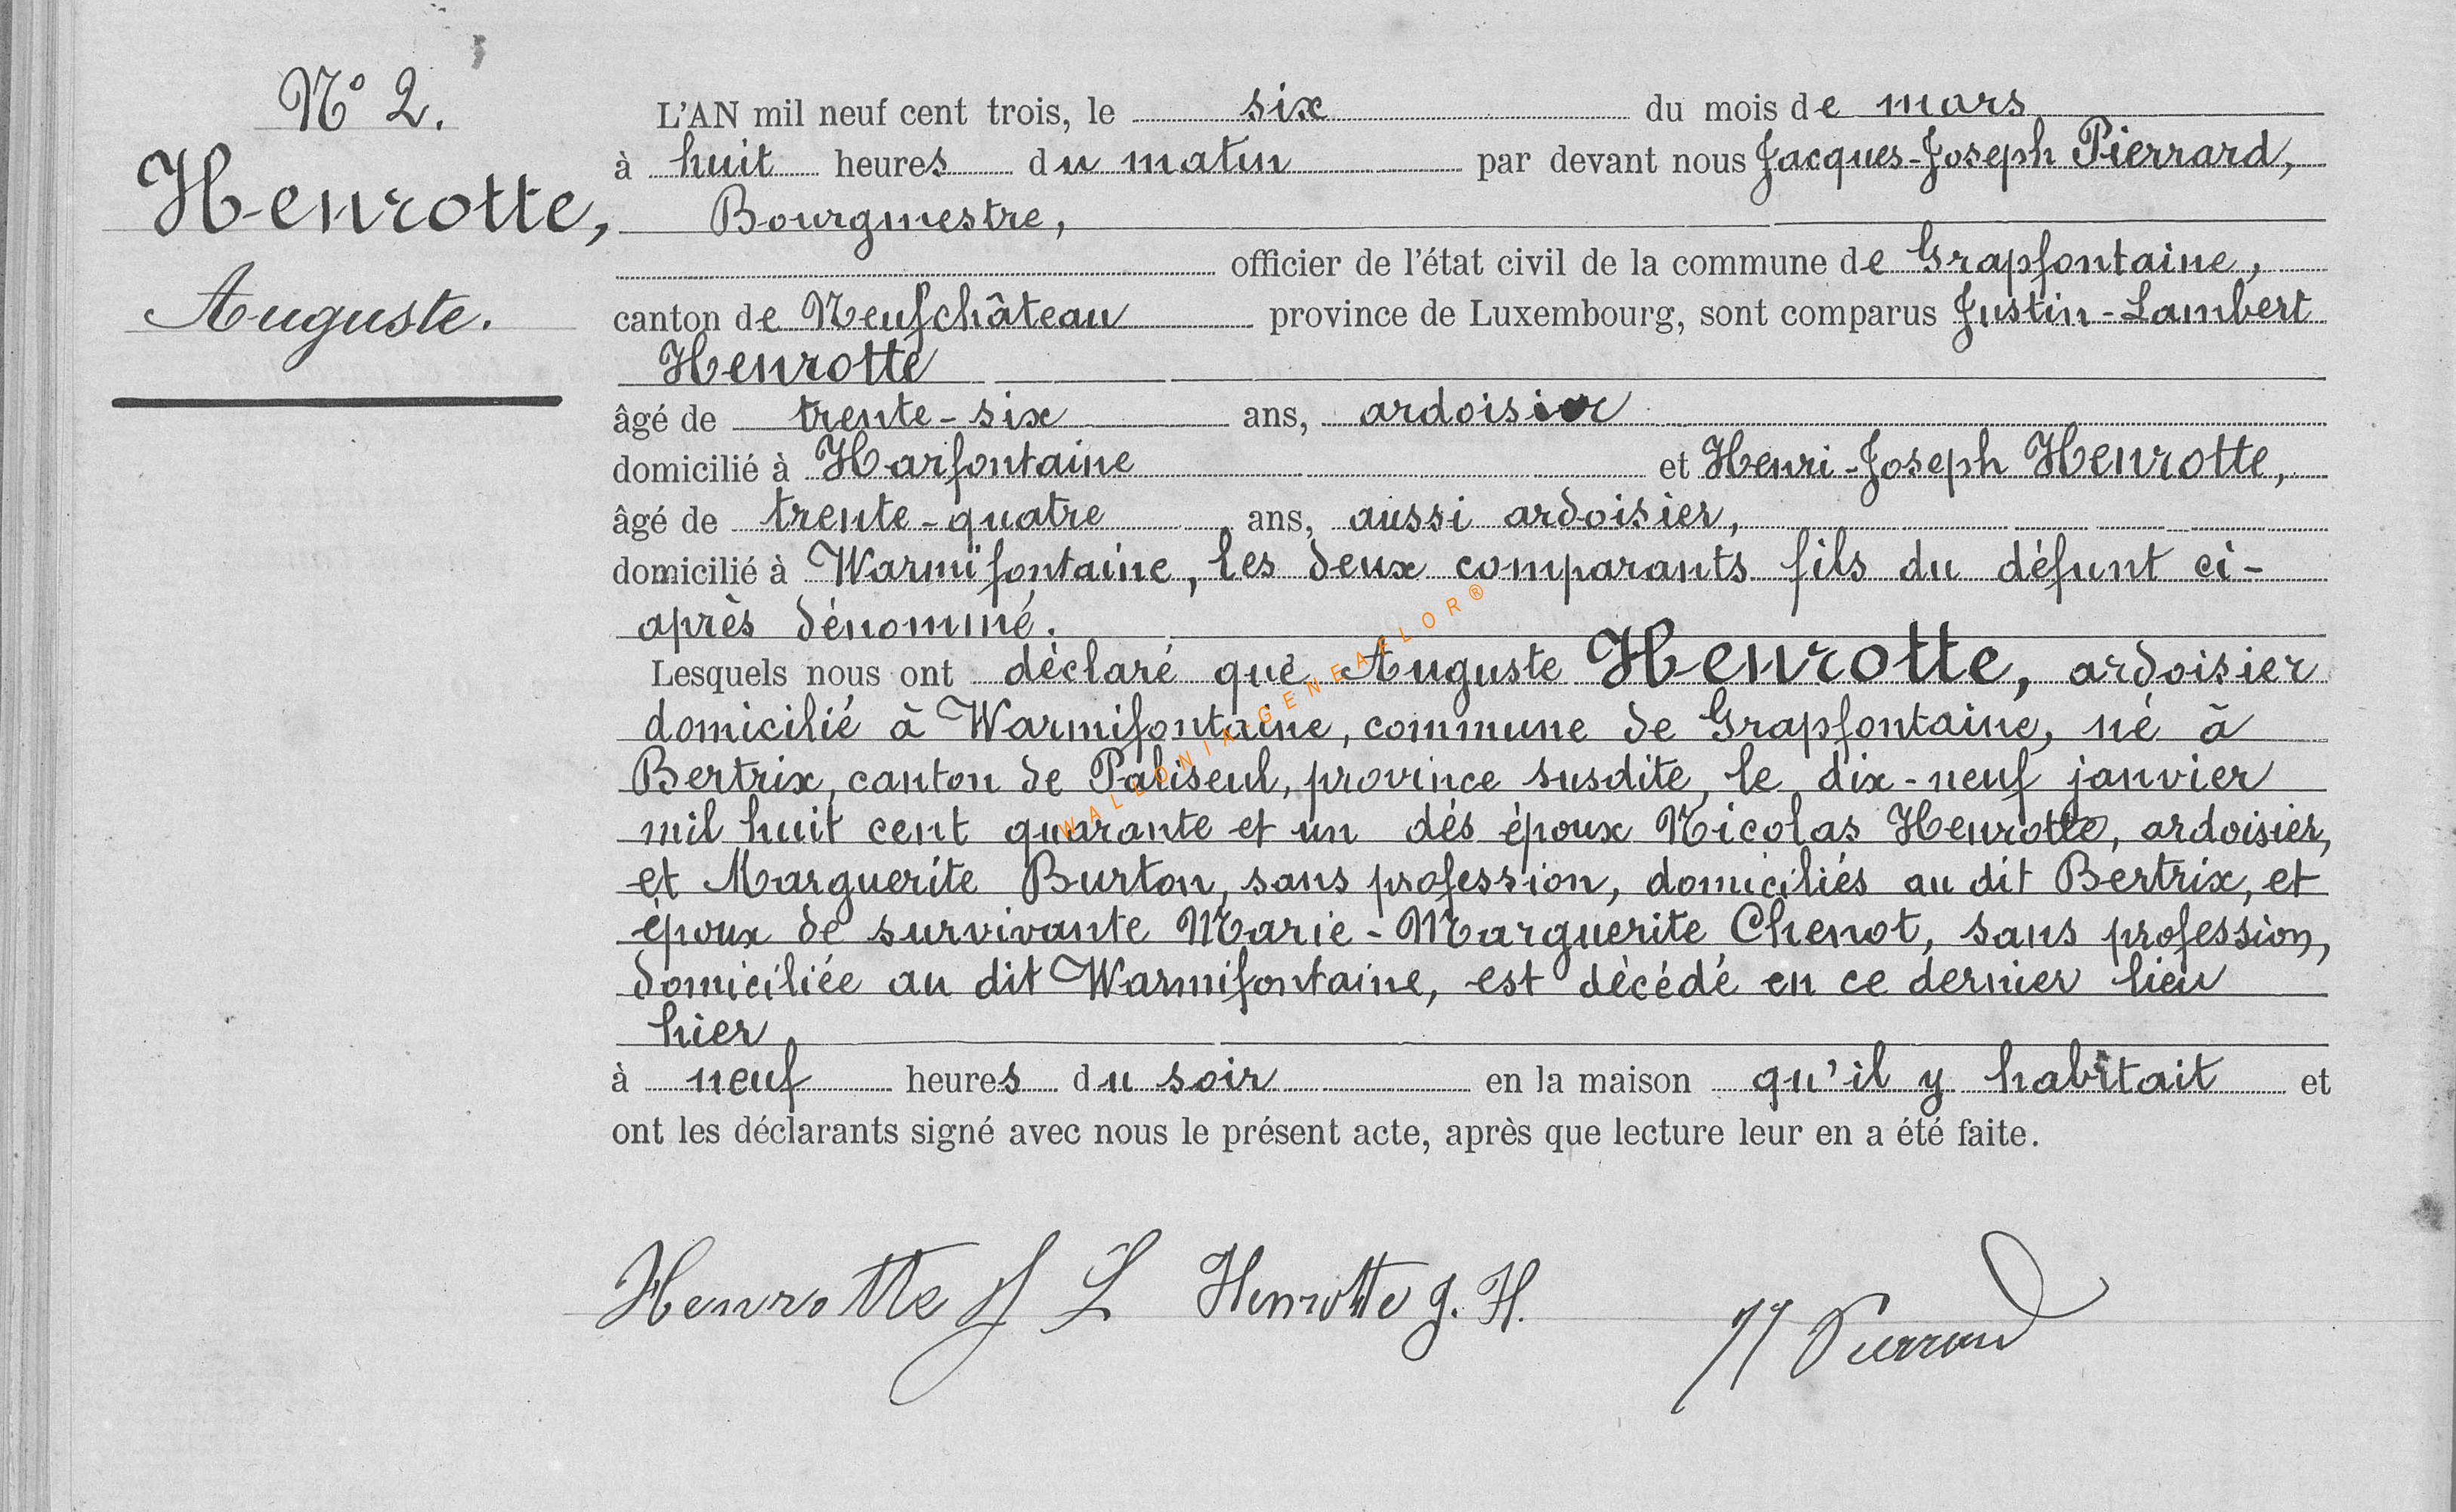 N° 2.
Henrotte,
Auguste.
L'AN mil neuf cent trois, le six du mois de mars
à huit heures du matin par devant nous Jacques-Joseph Pierrard,
Bourgmestre,
officier de l'état civil de la commune de Grapfontaine,
canton de Neufchâteau province de Luxembourg, sont comparus Justin-Lambert
Henrotte
âgé de trente-six ans, ardoisier
domicilié à Harfontaine et Henri-Joseph Henrotte,
âgé de trente-quatre ans, aussi ardoisier,
domicilié à Warmifontaine, les deux comparants fils du défunt ci-
après dénommé.
Lesquels nous ont déclaré que Auguste Henrotte, ardoisier
domicilié à Warmifontaine, commune de Grapfontaine, né à
Bertrix, canton de Paliseul, province susdite, le dix-neuf janvier
mil huit cent quarante et un des époux Nicolas Henrotte, ardoisier,
et Marguerite Burton, sans profession, domiciliés au dit Bertrix, et
époux de survivante Marie-Marguerite Chenot, sans profession,
domiciliée au dit Warmifontaine, est décédé en ce dernier lieu
hier
à neuf heures du soir en la maison qu'il y habitait et
ont les déclarants signé avec nous le présent acte, après que lecture leur en a été faite.
Henrotte J L Henrotte J. H. JJ Pierrard
WALLONIA-GENEAFLOR®